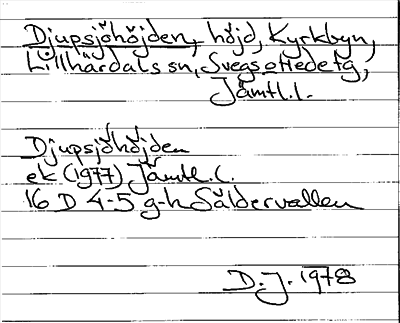 Djupsjöhöjden, höjd, Kyrkbyn,
Lillhärdals sn, Svegs o Hede tg,
Jämtl.l.
Djupsjöhöjden
ek (1977) Jämtl.l.
16 D 4-5 g-h Såldervallen
D.J. 1978